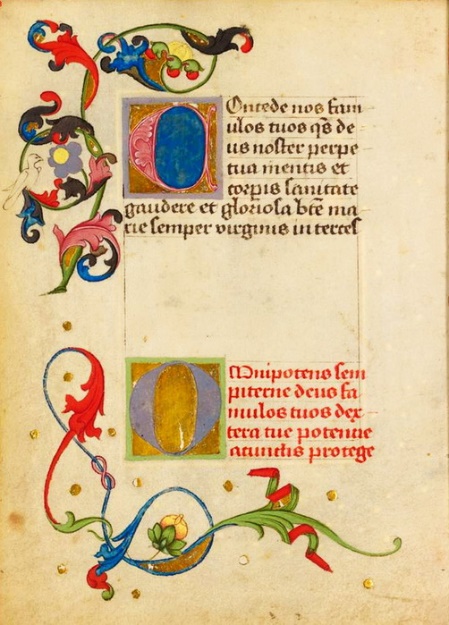 Concede nos fam
ulos tuos qs de
us noster perpe
tua mentis et
corpis sanitate
gaudere et gloriosa bte ma
rie semper virginis in terces
Omnipotens sem
piterne deus fa
mulos tuos dex
tera tue potencie
a cunctis protege